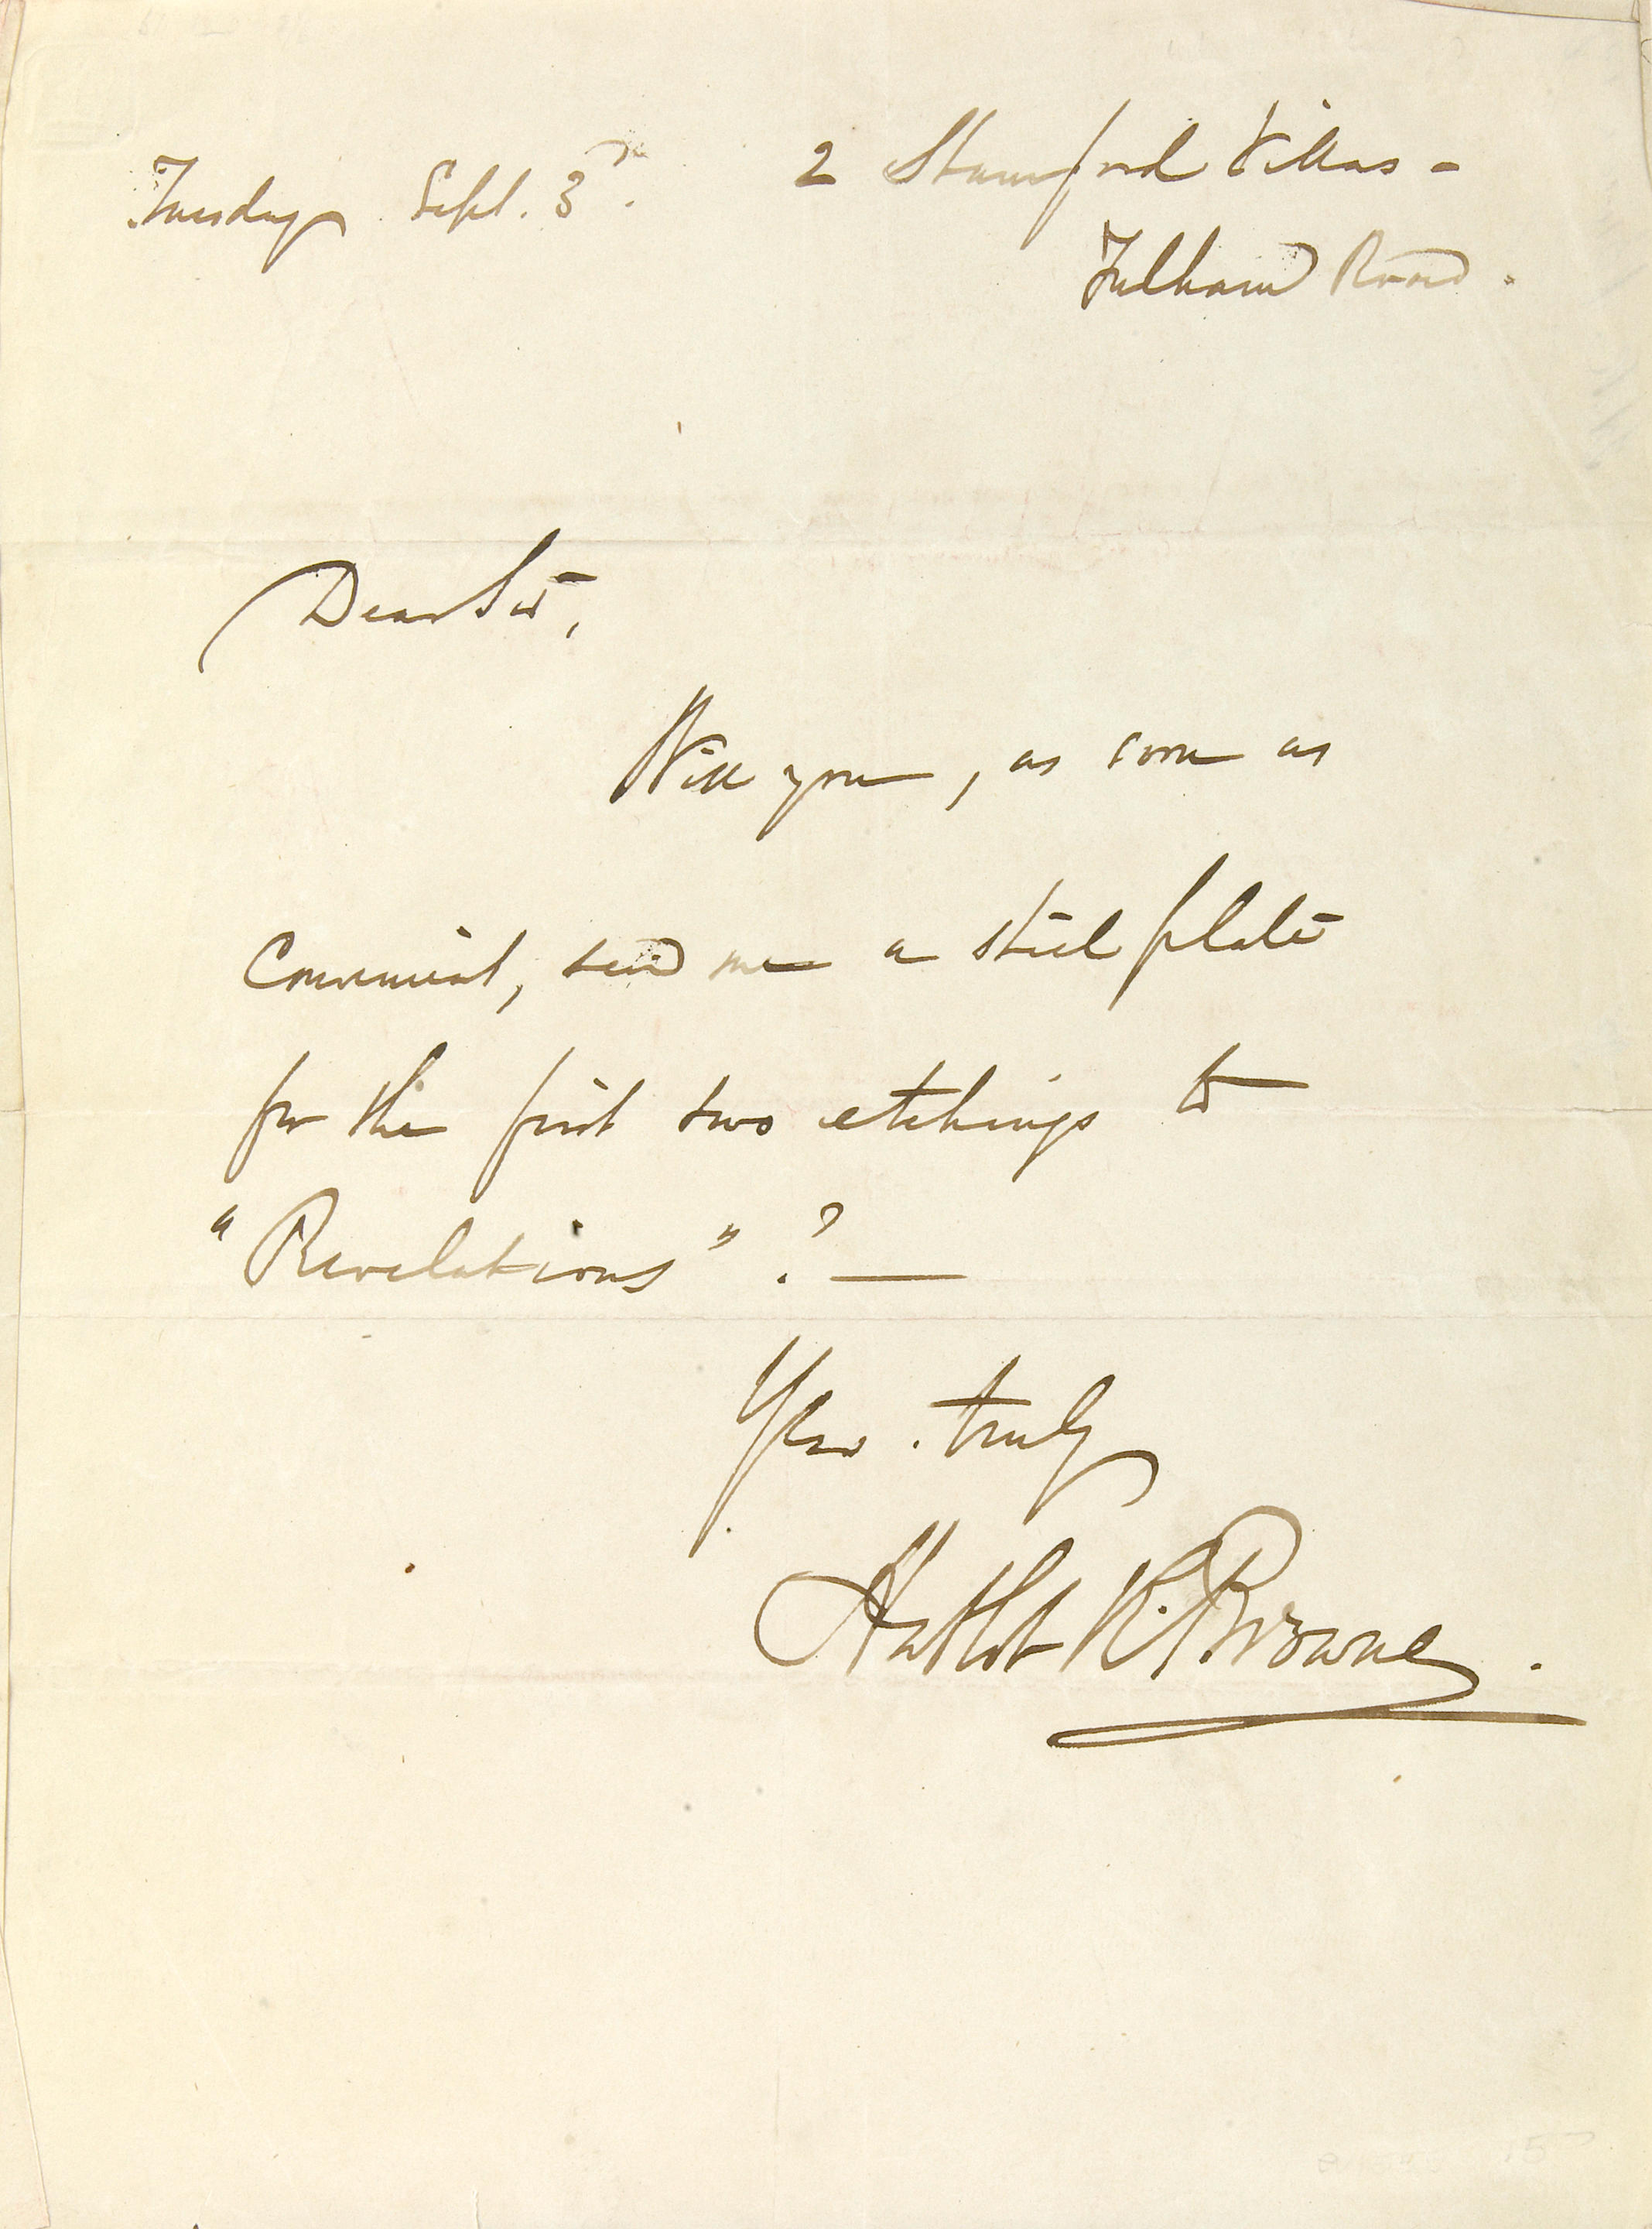 Tuesday Sept. 3d. 2 Stamford Villas -
Fulham Road.
Dear Sir,
Will you, as soon as
Convenient, send me a steel plate
for the first two etchings to
"Revelations"? —
Yrs. truly
Hablot K. Browne.